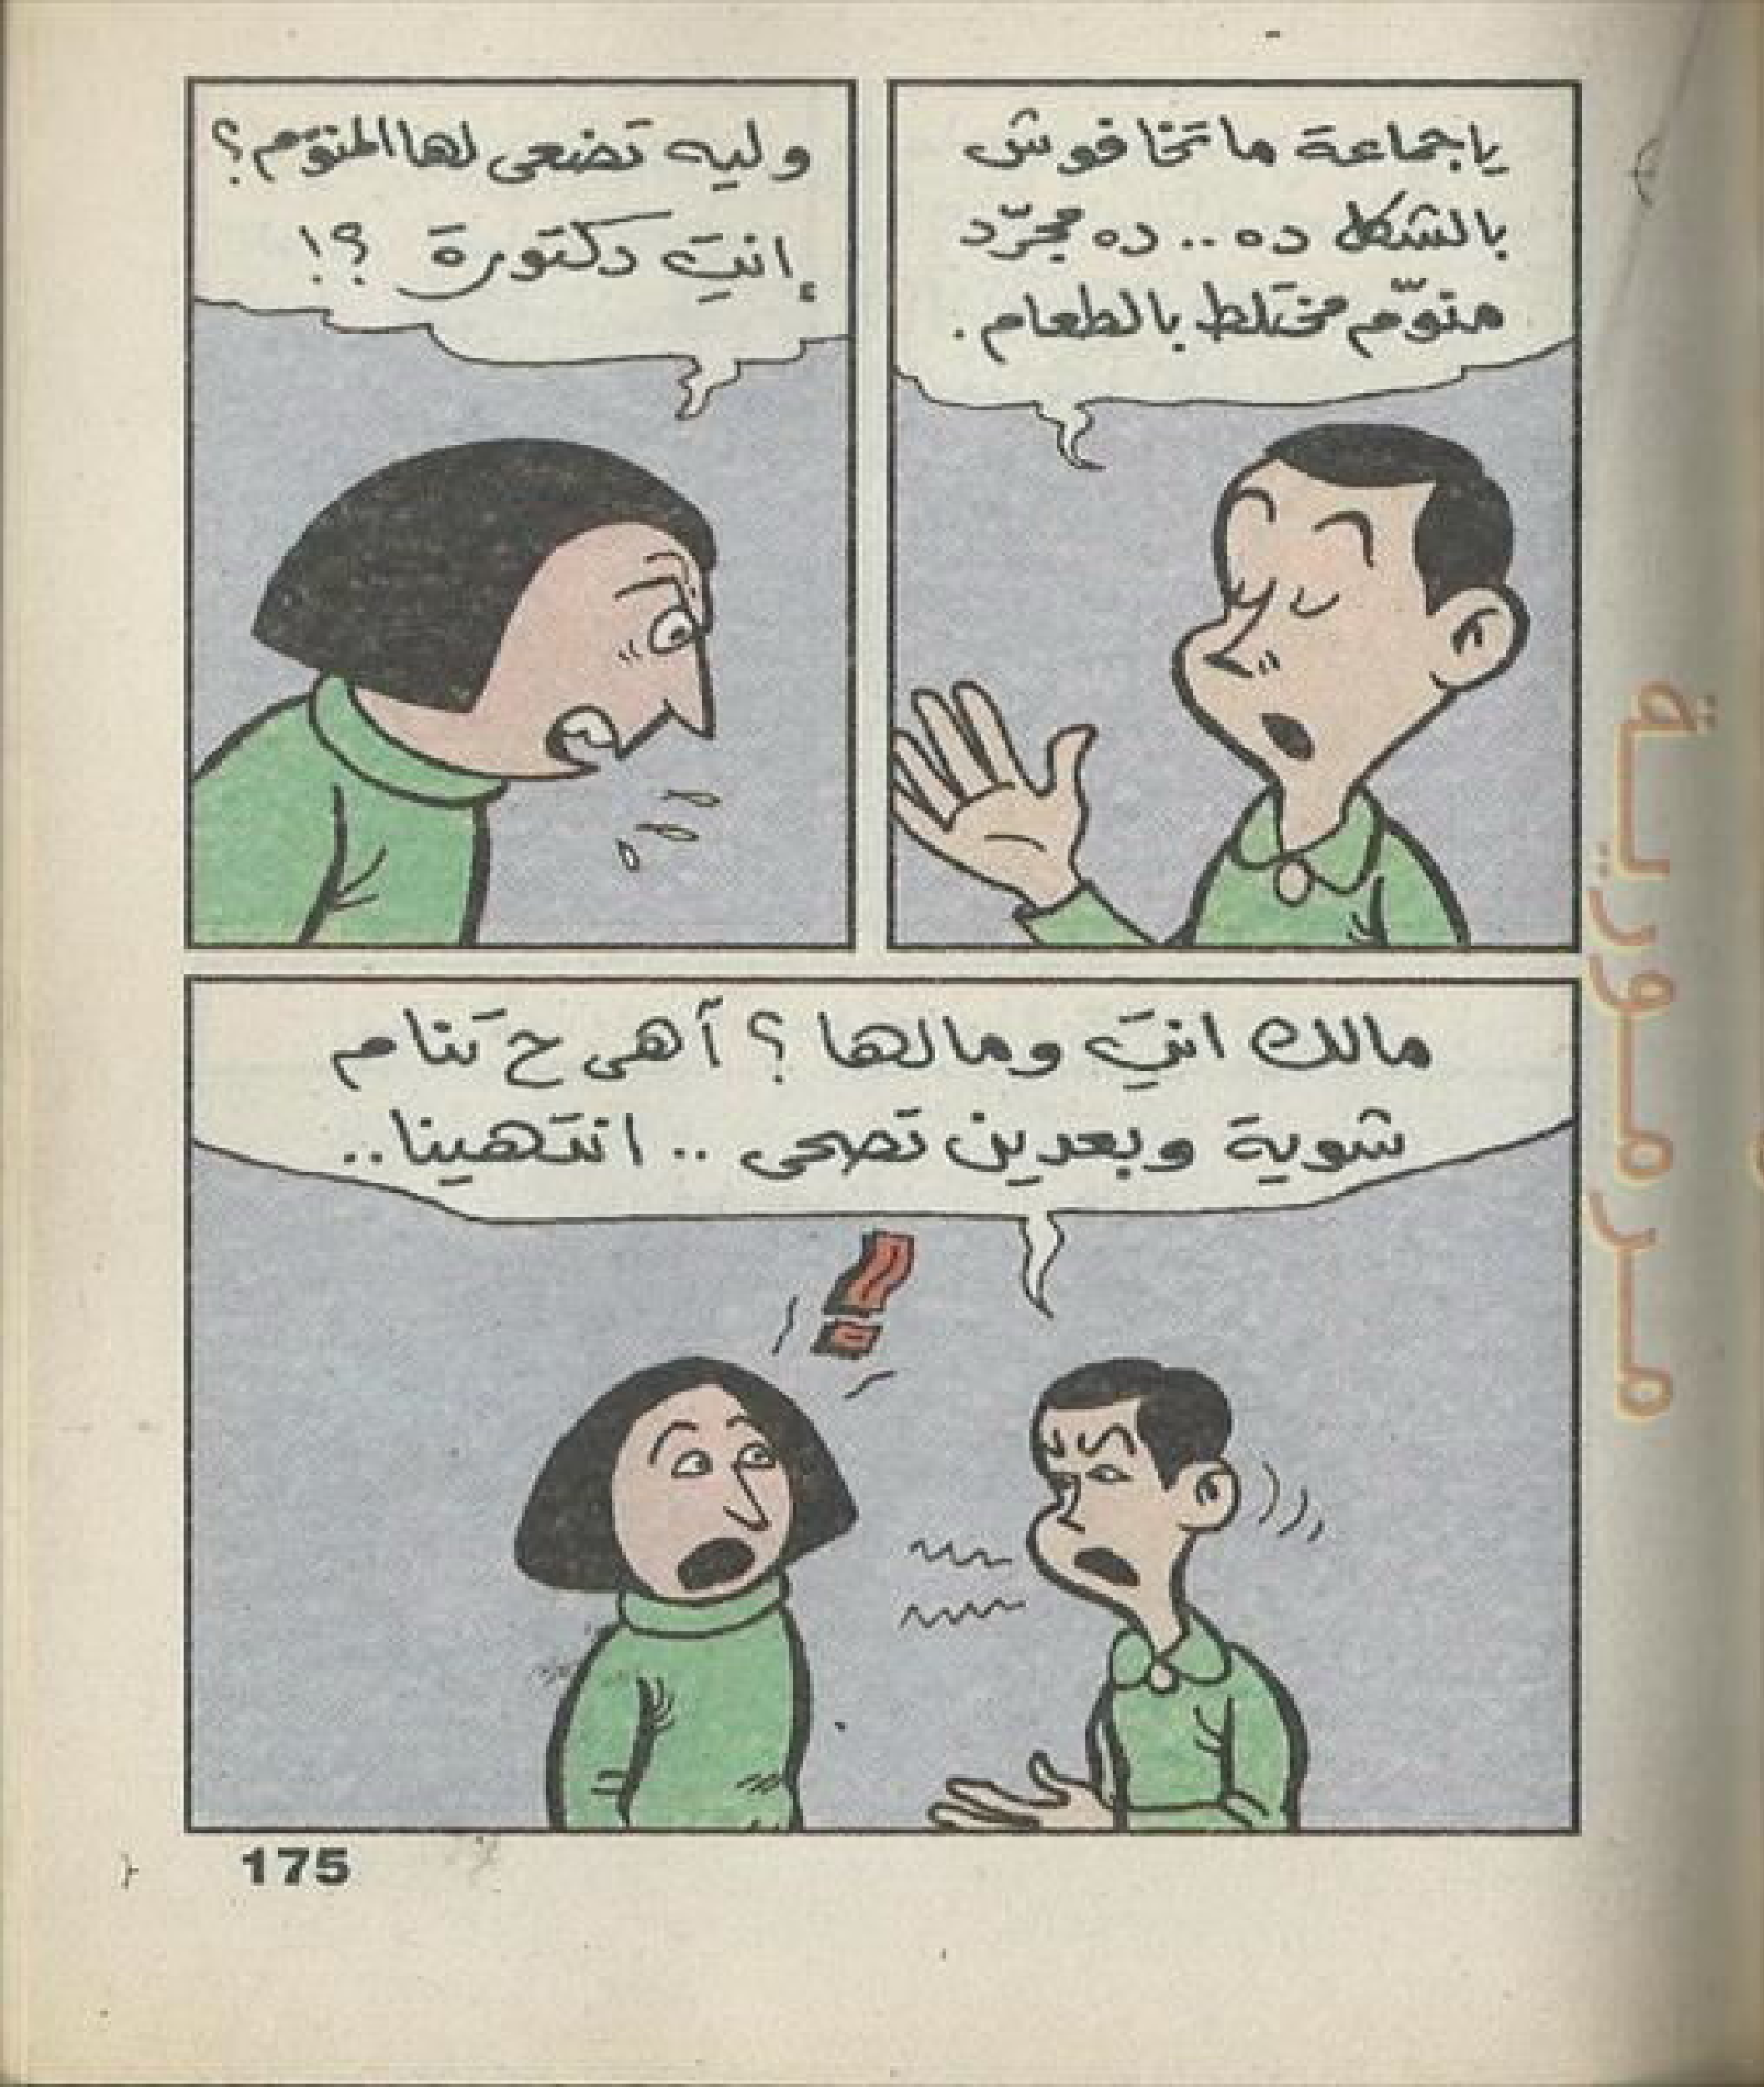 ياجماعة ما تخافوش
بالشكل ده .. ده مجرّد
منوّم مختلط بالطعام .
وليه تضعى لها المنوّم ؟
إنتِ دكتورة ؟!
مالك انتِ ومالها ؟ آهى ح تَنام
شوية وبعدين تصحى .. انتهينا ..
مرمورية
175